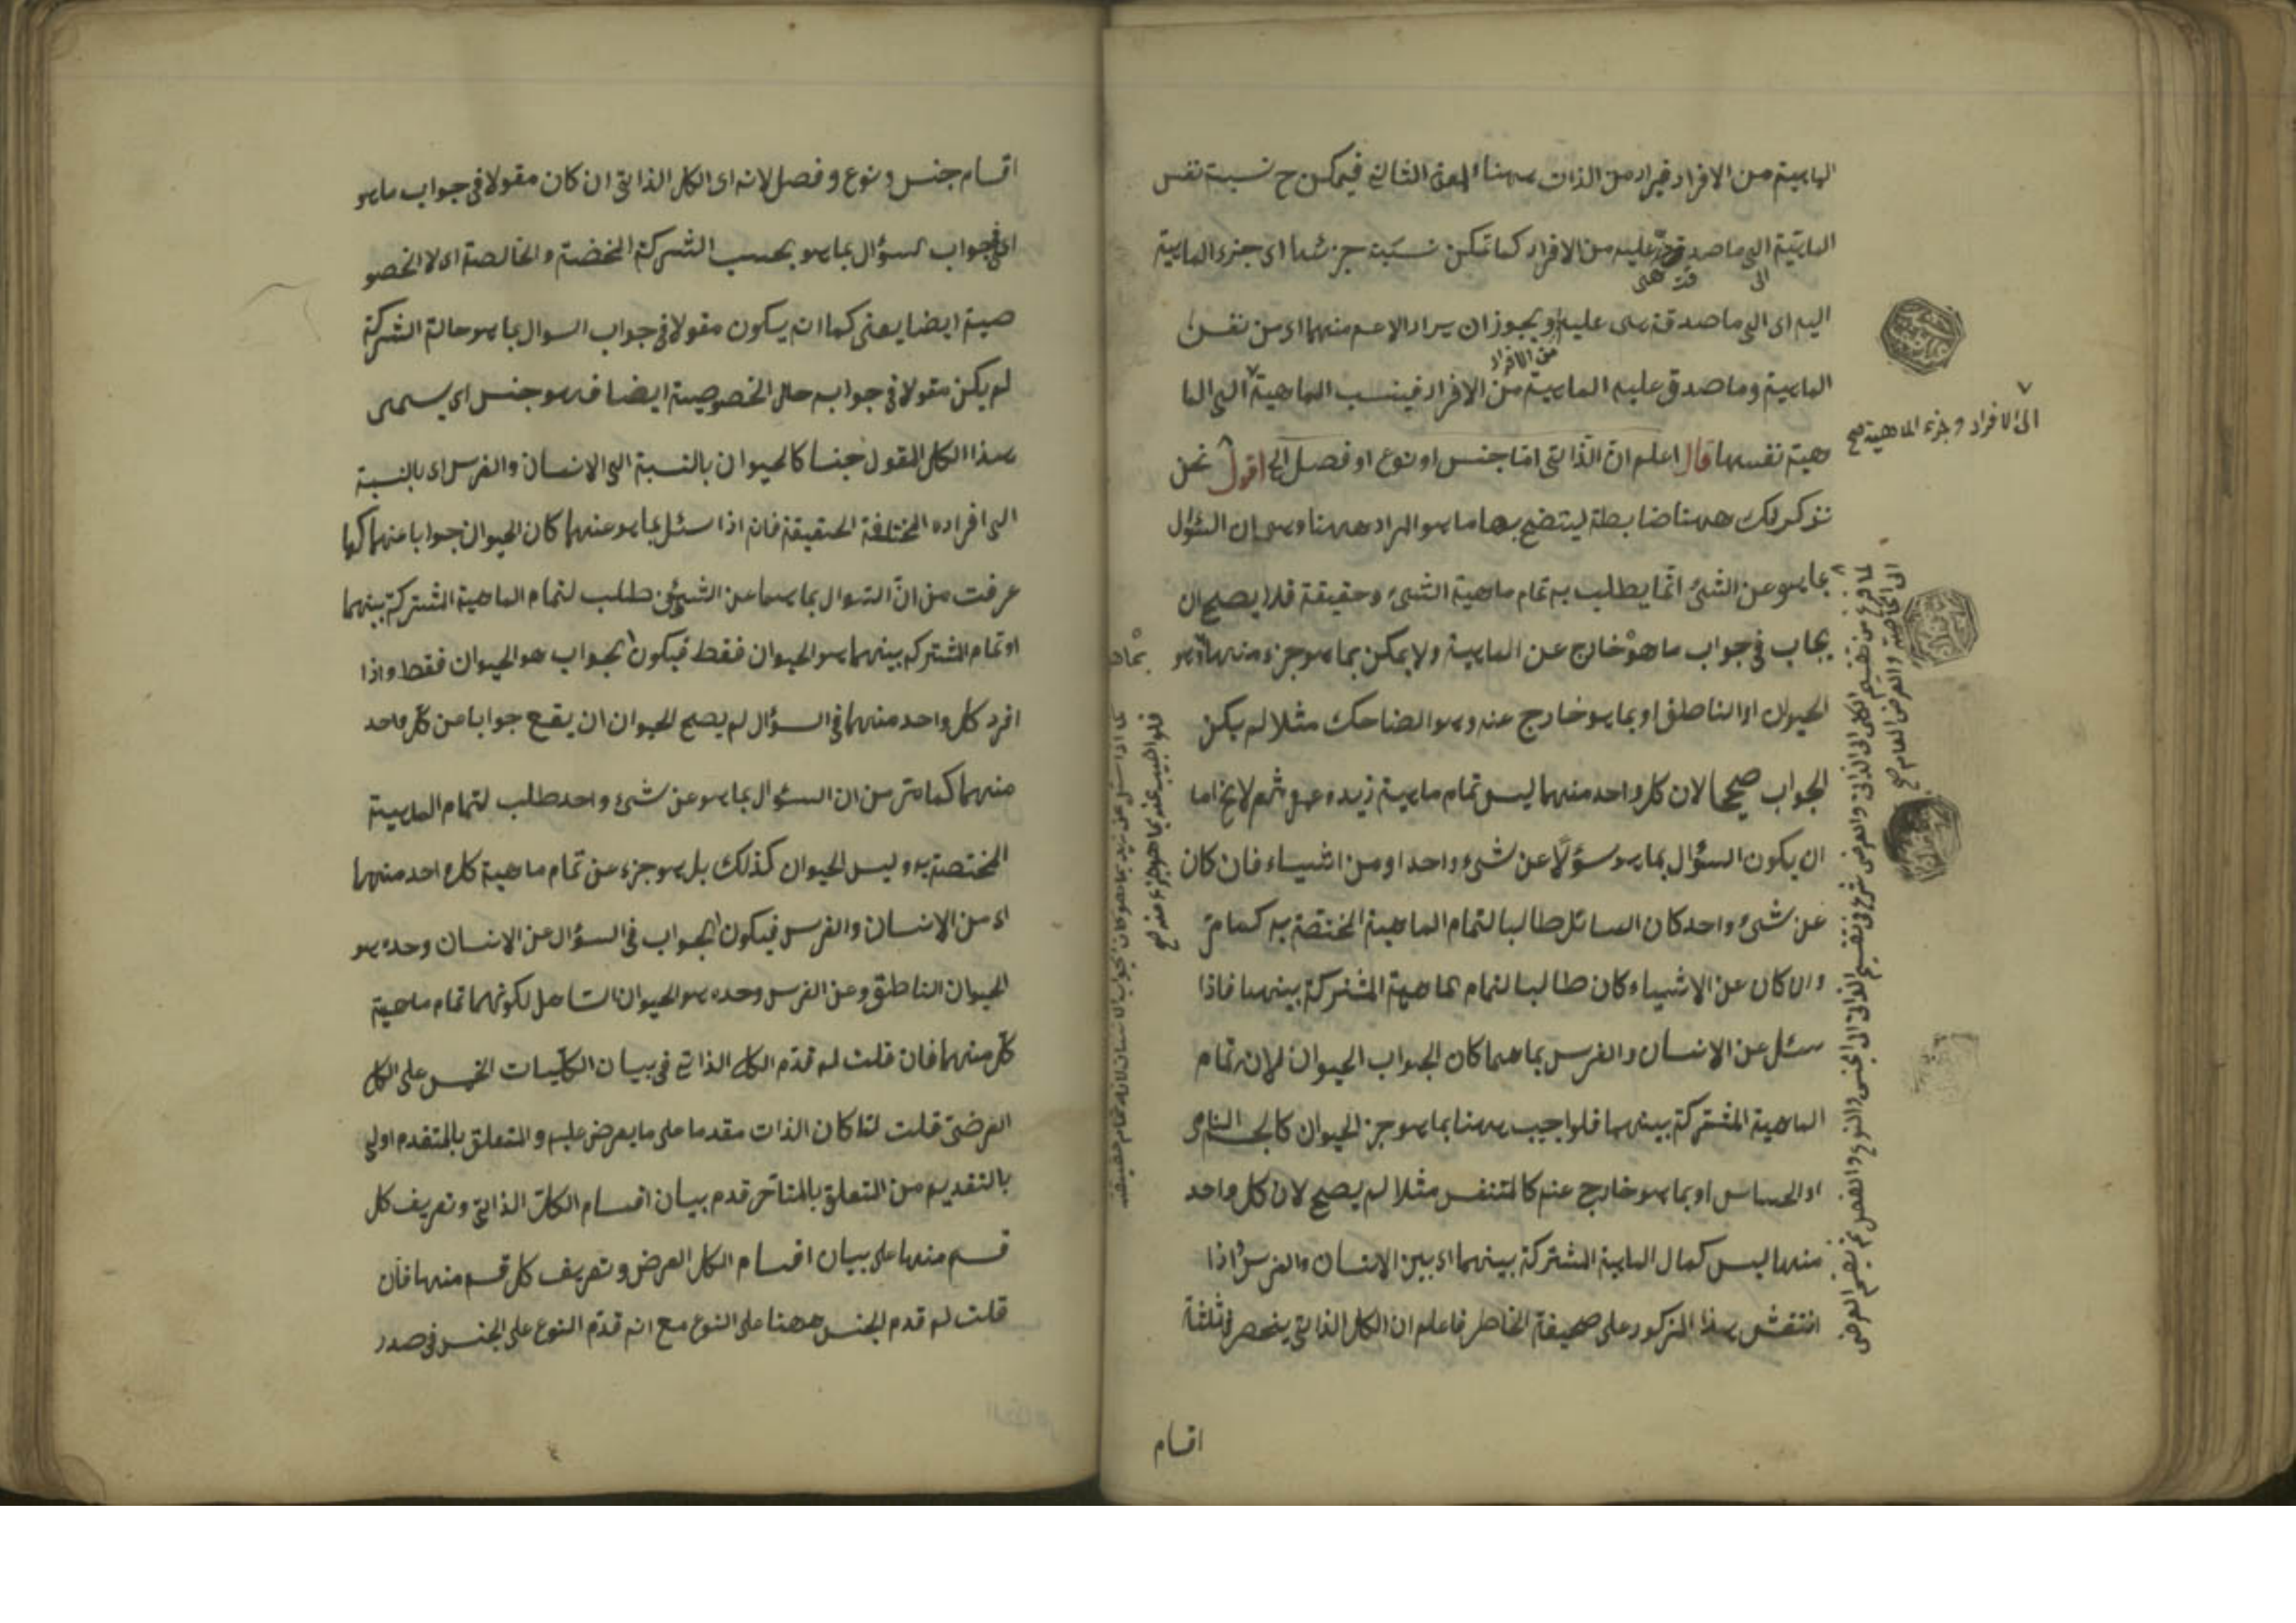 الماهية من الافراد فيراد من الذات ههنا المعنى الثاني فيمكن ح نسبة نفس
الماهية الى ما صدقت هى عليه من الافراد كما تمكن نسبت جزئها اى جزء الماهية
اليه اى الى ما صدقة هى عليه ويجوز ان يراد الاعم منهما اى من نفس
الماهية وما صدق عليه الماهية من الافراد فينسب الماهية الى الما
من الافراد
الى الافراد وجزء الماهية صح
هية نفسها قال اعلم ان الذاتى اما جنس او نوع او فصل الخ اقول نحن
نذكر لك ههنا ضابطة ليتضح بها ما هو المراد ههنا وهى ان السؤال
بما هو عن الشئ انما يطلب به تمام ماهية الشئ وحقيقة فلا يصح ان
يجاب فى جواب ما هو خارج عن الماهية ولا يمكن بما هو جزء منها وهو
الحيوان او الناطق او بما هو خارج عنه وهو الضاحك مثلا لم يكن
الجواب صحيحا لان كل واحد منهما ليس تمام ماهية زيد وعمرو ثم لا يخ اما
ان يكون السؤال بما هو سؤلا عن شئ واحد او من اشياء فان كان
عن شئ واحد كان السائل طالبا لتمام الماهية المختصة به كما مر
وان كان عن الاشياء كان طالبا لتمام الماهية المشتركة بينهما فاذا
سئل عن الانسان والفرس بما هما كان الجواب الحيوان لان تمام
الماهية المشتركة بينهما فلو اجيب ههنا بما هو جزء الحيوان كالجسم النامى
او الحساس او بما هو خارج عنه كالمتنفس مثلا لم يصح لان كل واحد
منها ليس كمال الماهية المشتركة بينهما اى بين الانسان والفرس واذا
انتقش هذا المذكور على صحيفة الخاطر فاعلم ان الكلى الذاتى ينحصر فى ثلثة
اقسام
لما فرغ من تقسيم الكلى الى الذاتى والعرضى شرع فى تقسيم الذاتى الى الجنس والنوع والفصل ثم تقسيم العرضى
الى الخاصة والعرض العام صح
فلو اجيب عنه بما هو جزء منه صح
اقسام جنس ونوع وفصل لانه اى الكلى الذاتى ان كان مقولا فى جواب ما هو
اى فى جواب السؤال بما هو بحسب الشركة المخضة والخالصة اى لا الخصو
صية ايضا يعنى كما انه يكون مقولا فى جواب السوال بما هو حالة الشركة
لم يكن مقولا فى جوابه حال الخصوصية ايضا فهو جنس اى يسمى
هذا الكلى المقول جنسا كالحيوان بالنسبة الى الانسان والفرس اى بالنسبة
الى افراده المختلفة الحقيقة فانه اذا سئل بما هو عنهما كان الحيوان جوابا عنهما كما
عرفت من ان السوال بما هما عن الشيئين طلب لتمام الماهية المشتركة بينهما
او تمام المشتركه بينهما هو الحيوان فقط فيكون الجواب هو الحيوان فقط واذا
افرد كل واحد منهما فى السؤال لم يصح الحيوان ان يقع جوابا عن كل واحد
منهما كما مر من ان السؤال بما هو عن شئ واحد طلب لتمام الماهية
المختصة به وليس الحيوان كذلك بل هو جزء عن تمام ماهية كل واحد منهما
اى من الانسان والفرس فيكون الجواب فى السؤال عن الانسان وحده هو
الحيوان الناطق وعن الفرس وحده هو الحيوان الصاهل لكونهما تمام ماهية
كل منهما فان قلت لم قدم الكلى الذاتى فى بيان الكليات الخمس على الكلى
العرضى قلت لما كان الذات مقدما على ما يعرض عليه والمتعلق بالمتقدم اولى
بالتقديم من المتعلق بالمتاخر قدم بيان اقسام الكلى الذاتى وتعريف كل
قسم منها على بيان اقسام الكلى العرضى وتعريف كل قسم منها فان
قلت لم قدم الجنس ههنا على النوع مع انه قدم النوع على الجنس فى صدر